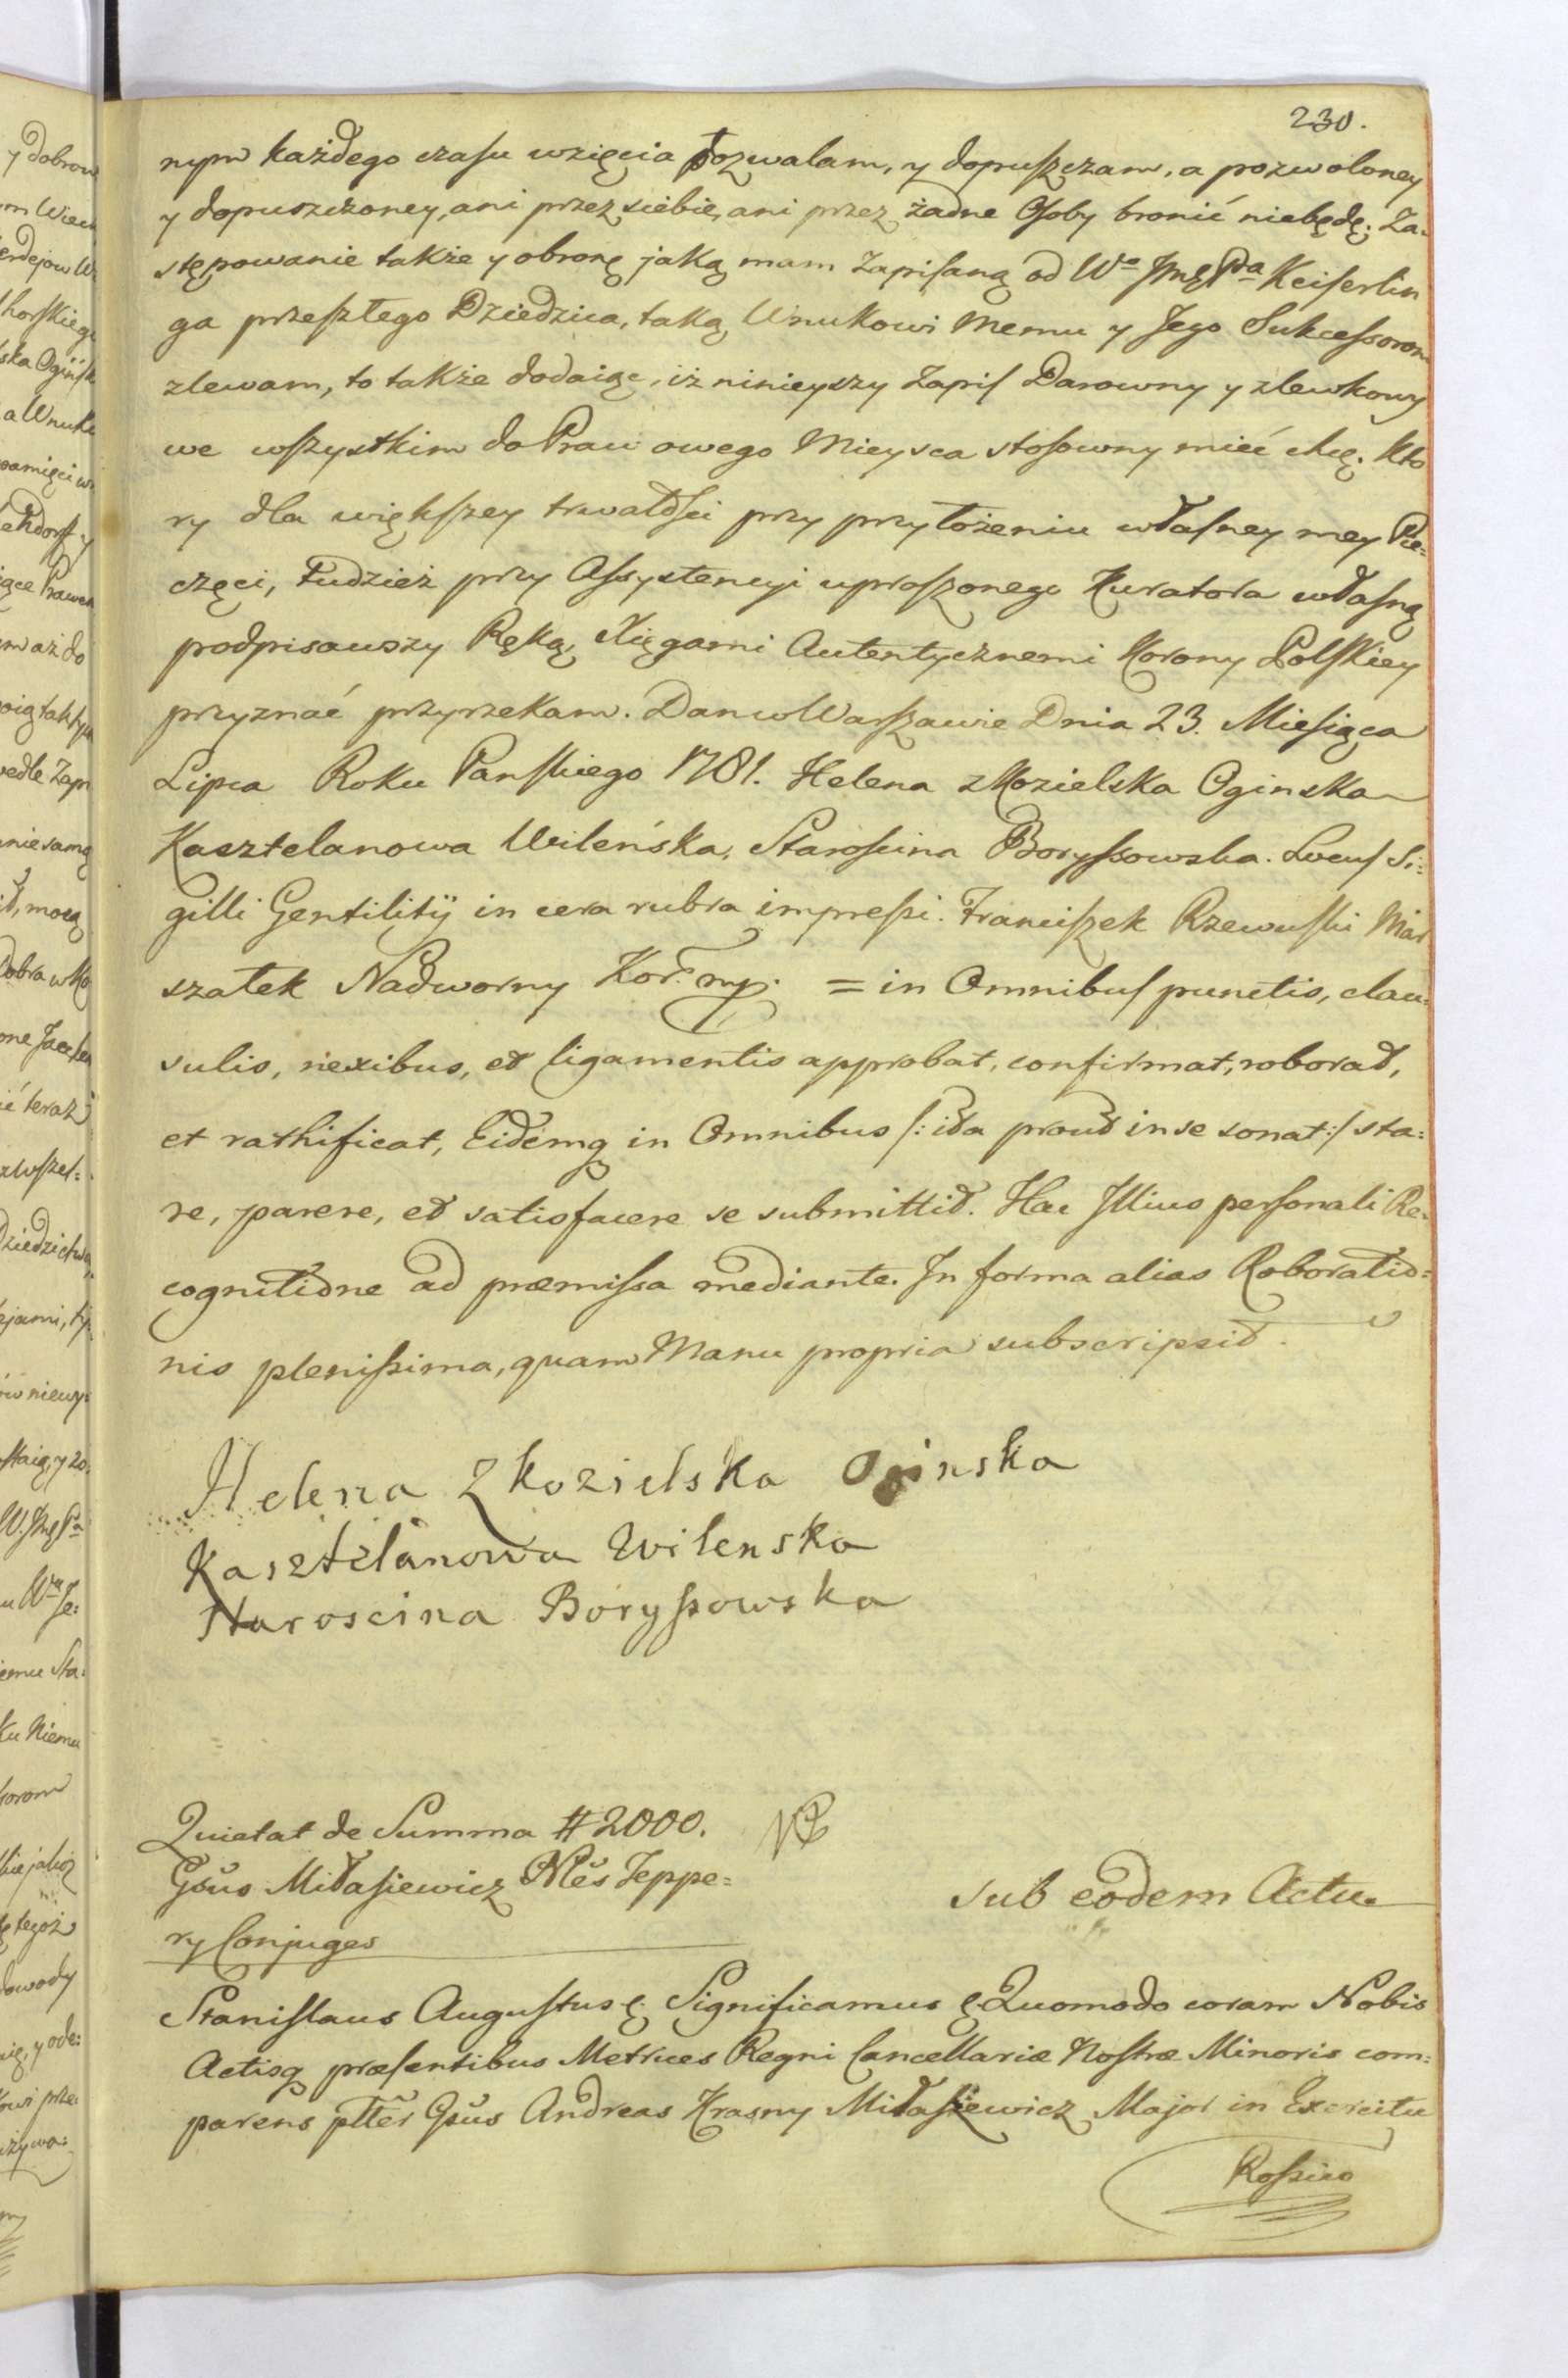 230.
nym każdego czasu wzięcia pozwalam, y dopuszczam, a pozwoloney
y dopuszczoney, ani przez siebie, ani przez żadne Osoby bronić niebędę. Za-
stępowanie także y obronę jaką mam Zapisaną od Wo Jmę Pda Keiserlin
ga przeszłego Dziedzica, taką Wnukowi Memu y Jego Sukcessorom
zlewam, to także dodaię, iż ninieyszy Zapis Darowny y zlewkowy
we wszystkim do Praw owego Mieysca stosowny mieć chcę. Kto
ry dla większey trwałości przy przyłożeniu własney mey Pie-
częci, Tudzież przy Assystencyi uproszonego Kuratora własną
podpisawszy Ręką, Xięgami Autentycznemi Korony Polskiey
przyznać przyrzekam. Dan w Warszawie Dnia 23. Miesiąca
Lipca Roku Panskiego 1781. Helena z Kozielska Oginska
Kasztelanowa Wileńska, Starościna Boryssowska. Locus Si:
gilli Gentilitij in cera rubra impressi. Franciszek Rzewuski Mar
szałek Nadworny Kor. mp. = in Omnibus punctis, clau:
sulis, nexibus, et ligamentis approbat, confirmat, roborat,
et rathificat, Eidemq in Omnibus /: ita prout in se sonat :/ sta:
re, parere, et satisfacere se submittit. Hac Illius personali Re-
cognitione ad præmissa mediante. In forma alias Roboratio:
nis plenissima, quam Manu propria subscripsit.
Helena Zkozielska Oginska
Kasztelanowa Wilenska
Staroscina Boryssowska
Quietat de Summa # 2000.
Gsus Miłasiewicz Nles Teppe=
ry Conjuges
sub eodem Actu
Stanislaus Augustus &. Significamus & Quomodo coram Nobis
Actisq præsentibus Metrices Regni Cancellariæ Nostræ Minoris com:
parens pltter Gsus Andreas Krasny Miłasiewicz Major in Exercitu
Rossico